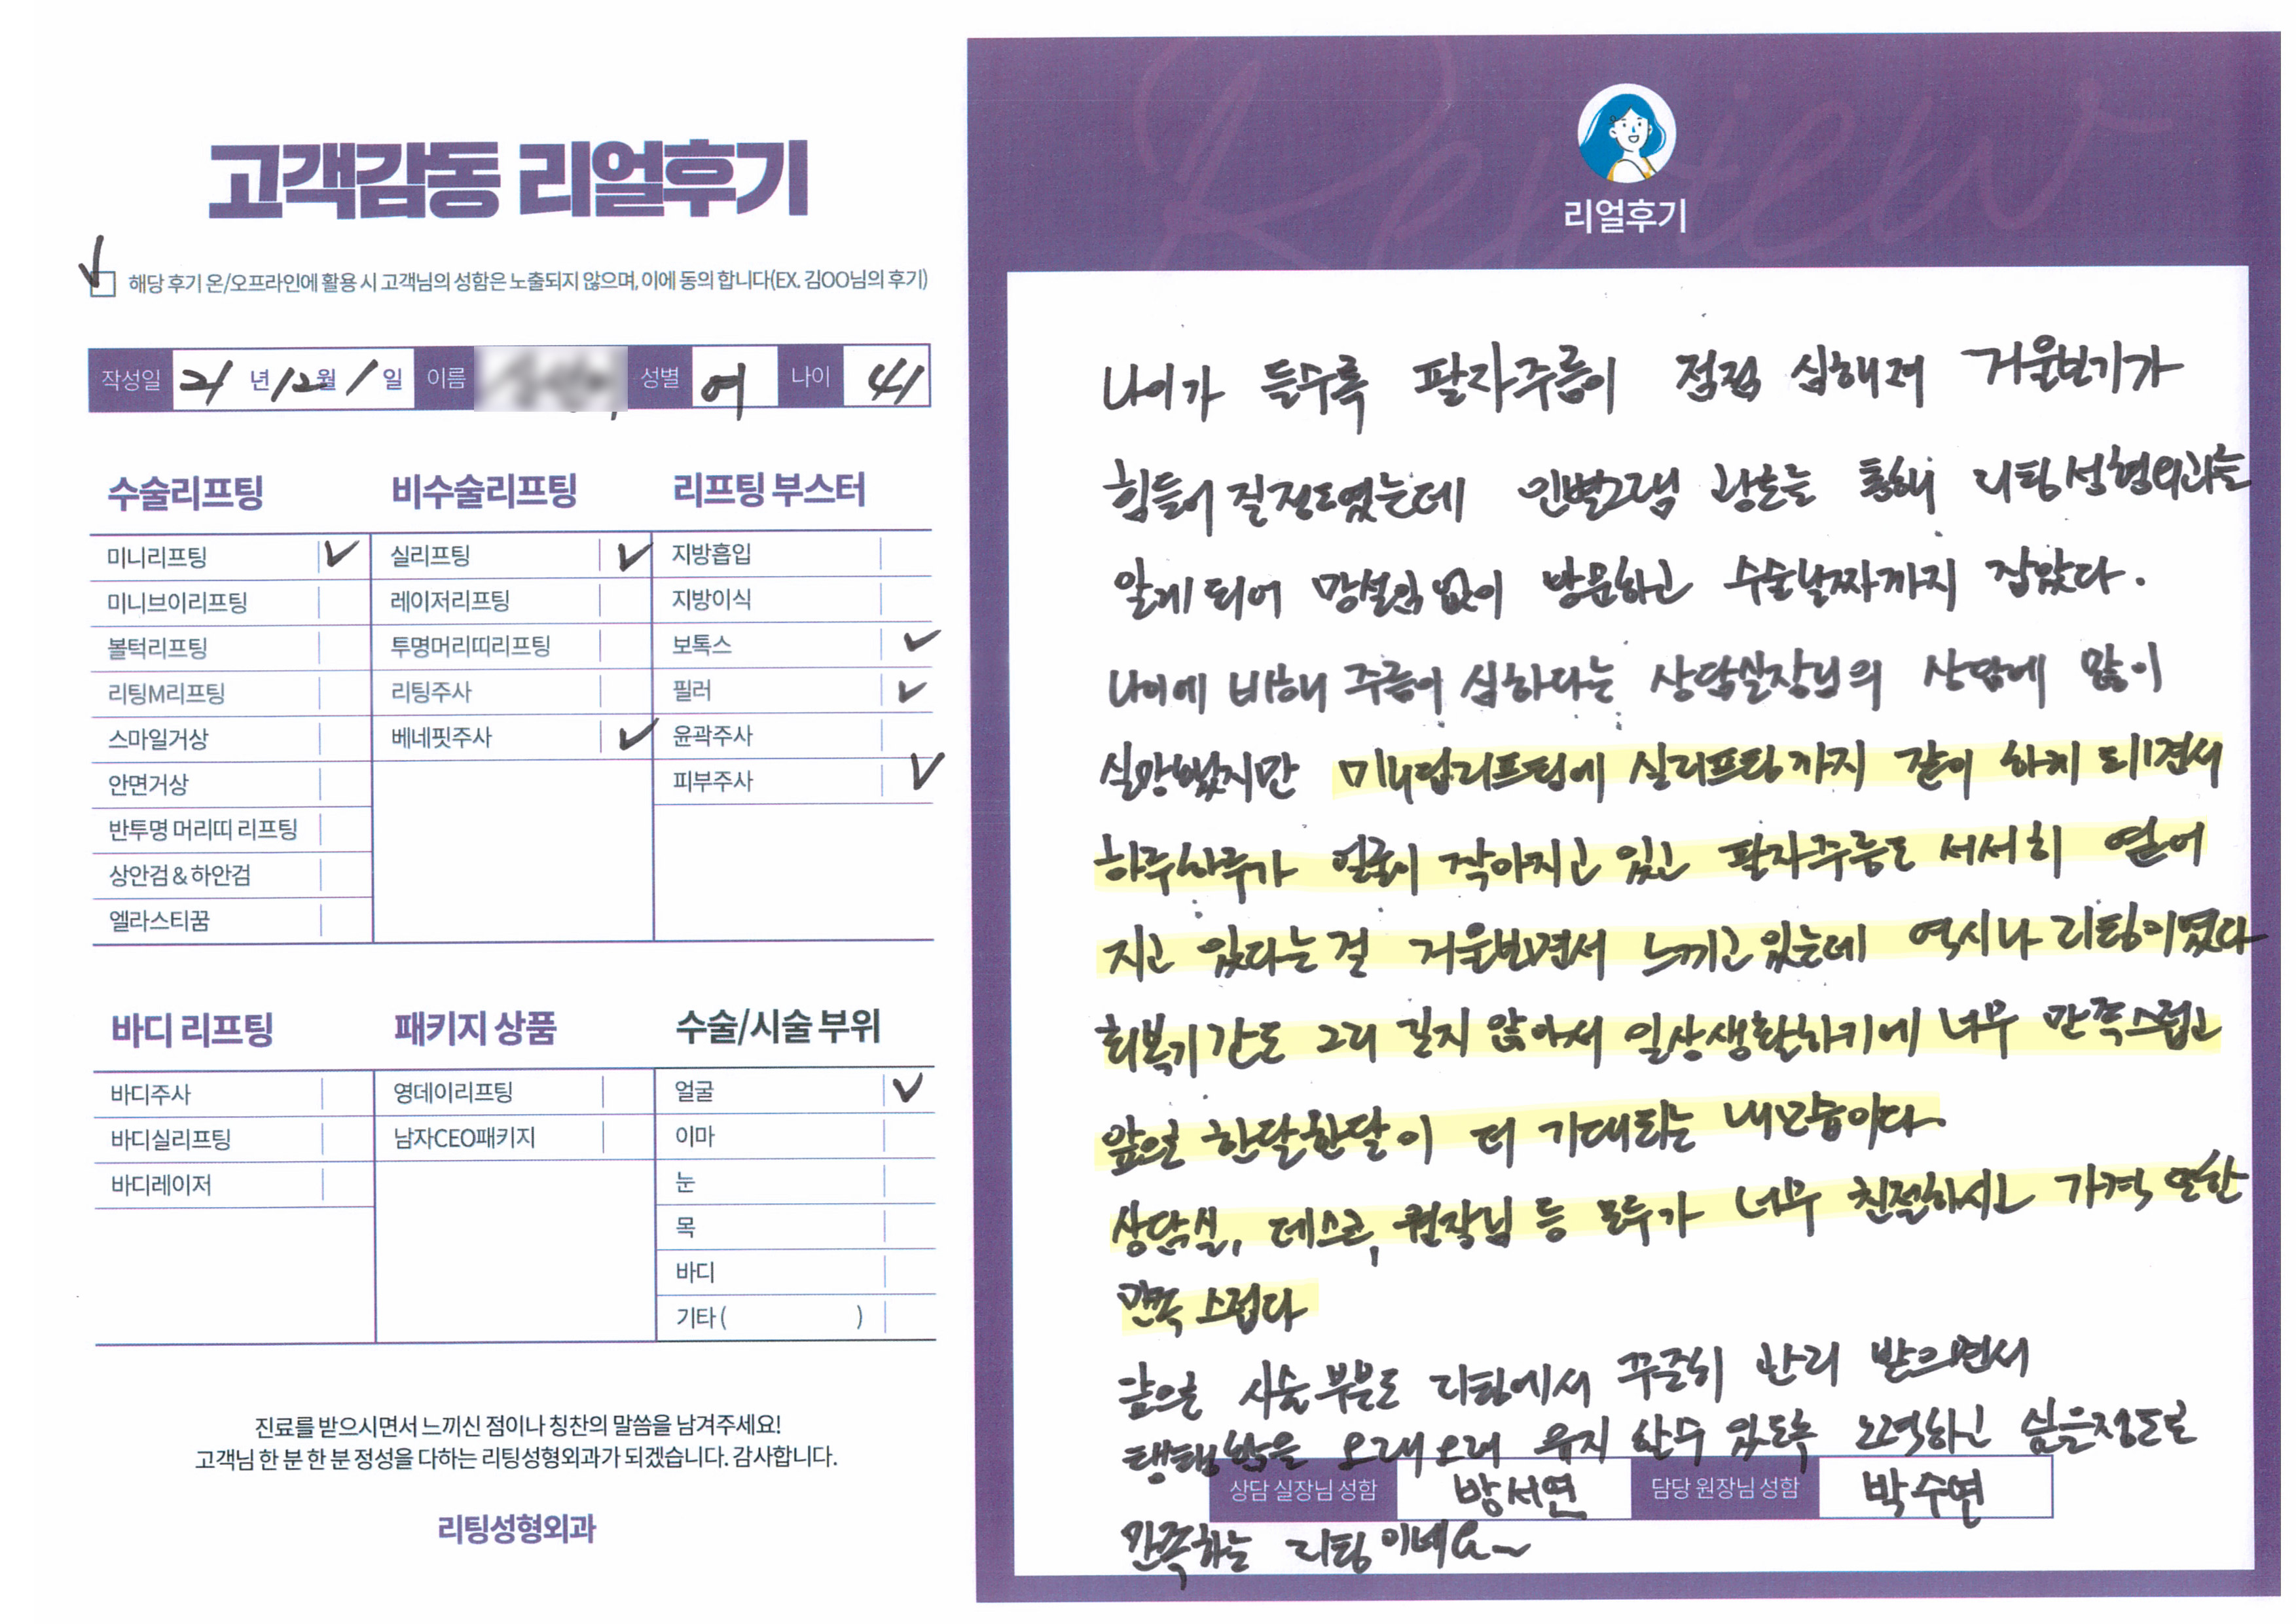 고객감동 리얼후기
해당 후기 온/오프라인에 활용 시 고객님의 성함은 노출되지 않으며, 이에 동의 합니다(EX. 김OO님의 후기)
작성일 21 년 12 월 1 일 이름 성별 여 나이 41
수술리프팅
미니리프팅
미니브이리프팅
볼턱리프팅
리팅M리프팅
스마일거상
안면거상
반투명 머리띠 리프팅
상안검 & 하안검
엘라스티꿈
비수술리프팅
실리프팅
레이저리프팅
투명머리띠리프팅
리팅주사
베네핏주사
리프팅 부스터
지방흡입
지방이식
보톡스
필러
윤곽주사
피부주사
바디 리프팅
바디주사
바디실리프팅
바디레이저
패키지 상품
영데이리프팅
남자CEO패키지
수술/시술 부위
얼굴
이마
눈
목
바디
기타 ( )
진료를 받으시면서 느끼신 점이나 칭찬의 말씀을 남겨주세요!
고객님 한 분 한 분 정성을 다하는 리팅성형외과가 되겠습니다. 감사합니다.
리팅성형외과
Review
리얼후기
나이가 들수록 팔자주름이 점점 심해져 거울보기가
힘들어 질정도였는데 인별그램 광고를 통해 리팅성형외과를
알게 되어 망설임 없이 방문하고 수술날짜까지 잡았다.
나이에 비해 주름이 심하다는 상담실장님의 상담에 많이
실망했지만 미니리프팅에 실리프팅까지 같이 하게 되면서
하루하루가 얼굴이 작아지고 있고 팔자주름도 서서히 옅어
지고 있다는걸 거울보면서 느끼고 있는데 역시나 리팅이였다
회복기간도 그리 길지 않아서 일상생활하기에 너무 만족스럽고
앞으로 한달한달이 더 기대되는 내모습이다.
상담실, 데스크, 원장님 등 모두가 너무 친절하시고 가격 또한
만족 스럽다
앞으로 시술부분도 리팅에서 꾸준히 관리 받으면서
탱탱함을 오래오래 유지 할수 있도록 노력하고 싶을정도로
상담 실장님 성함 방서연 담당 원장님 성함 박수연
만족하는 리팅이네요~